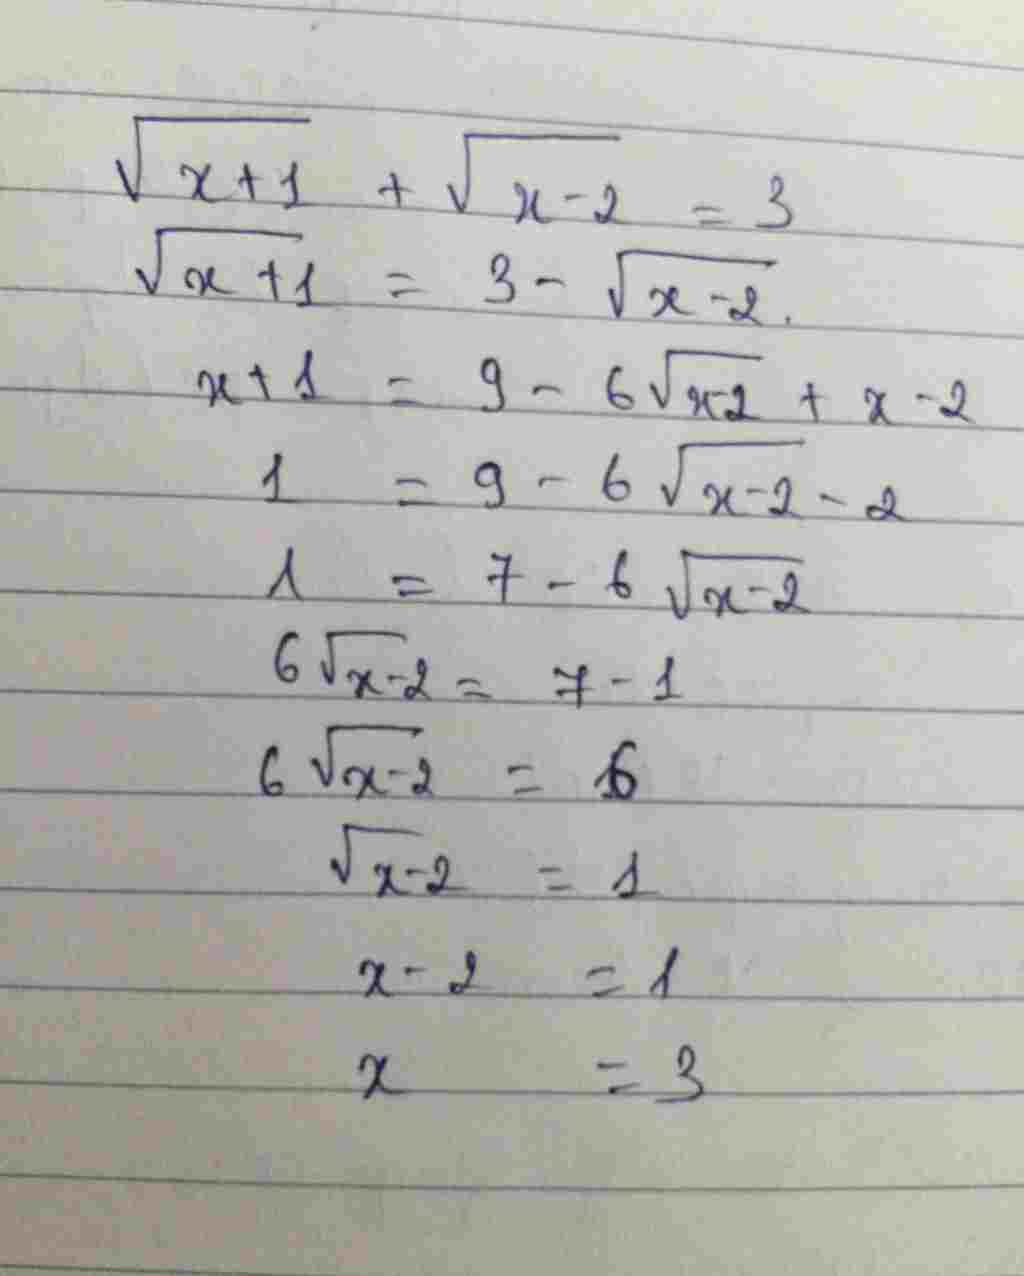 √(x+1) + √(x-2) = 3
√(x+1) = 3 - √(x-2).
x+1 = 9 - 6√(x-2) + x-2
1 = 9 - 6√(x-2) - 2
1 = 7 - 6√(x-2)
6√(x-2) = 7 - 1
6√(x-2) = 6
√(x-2) = 1
x-2 = 1
x = 3